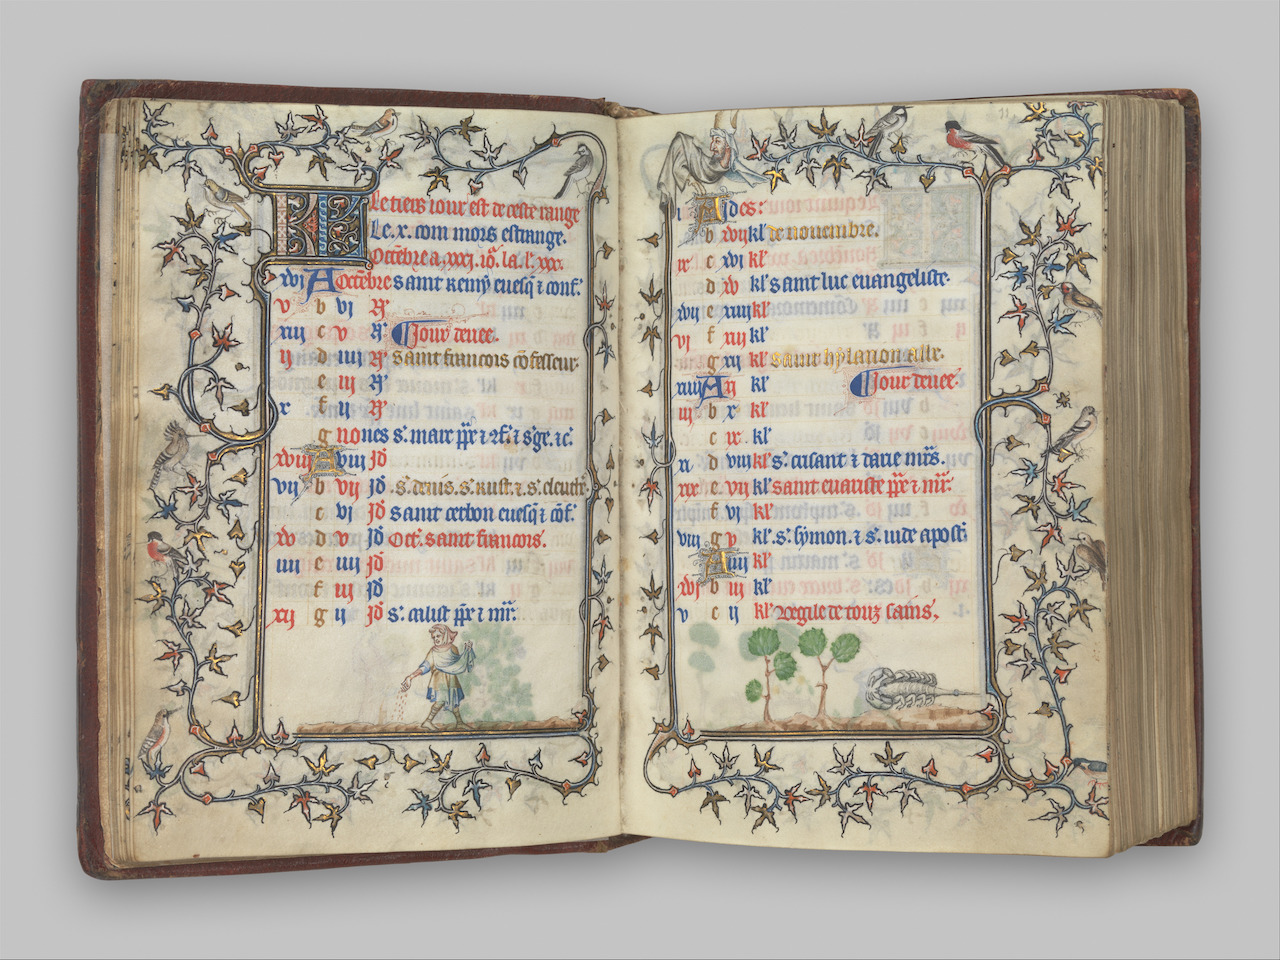 Le tiers iour est de ceste range
Le .x. com mors estrange.
Octēbre a .xxxj. iõ. la. l'. xxx.
xvj A octēbre saint Remy euesq̄ ⁊ conf.
v b vj N̄
xiij c v N̄ Iour denee.
ij d iiij N̄ saint francois cōfesseur.
e iij N̄
x f ij N̄
g nones s'. marc pp̄e ⁊
xviij A viij Jd
vij b vij Jd .s'. denis. s'. rust. ⁊ s'. eleuth'
c vj Jd saint cerbon euesq̄ ⁊ cōf.
xv d v Jd Oct'. saint francois.
iiij e iiij Jd
f iij Jd
xij g ij Jd s'. calixt pp̄e ⁊ mr̄.
11
i A Ides:
b xvij kl' de nouembre.
ix c xvj kl'
d xv kl' saint luc euangeliste.
xvij e xiiij kl'
vj f xiij kl'
g xij kl' saint hylarion
xiiij A xj kl' Iour denee.
iij b x kl'
c ix kl'
xj d viij kl' s'. crisant ⁊ darie mr̄s.
xix e vij kl' saint euariste pp̄e ⁊ mr̄.
f vj kl'
viij g v kl' .s'. symon. ⁊ s'. iude apost'
A iiij kl'
xvj b iij kl'
v c ij kl' Vegile de touz sains.